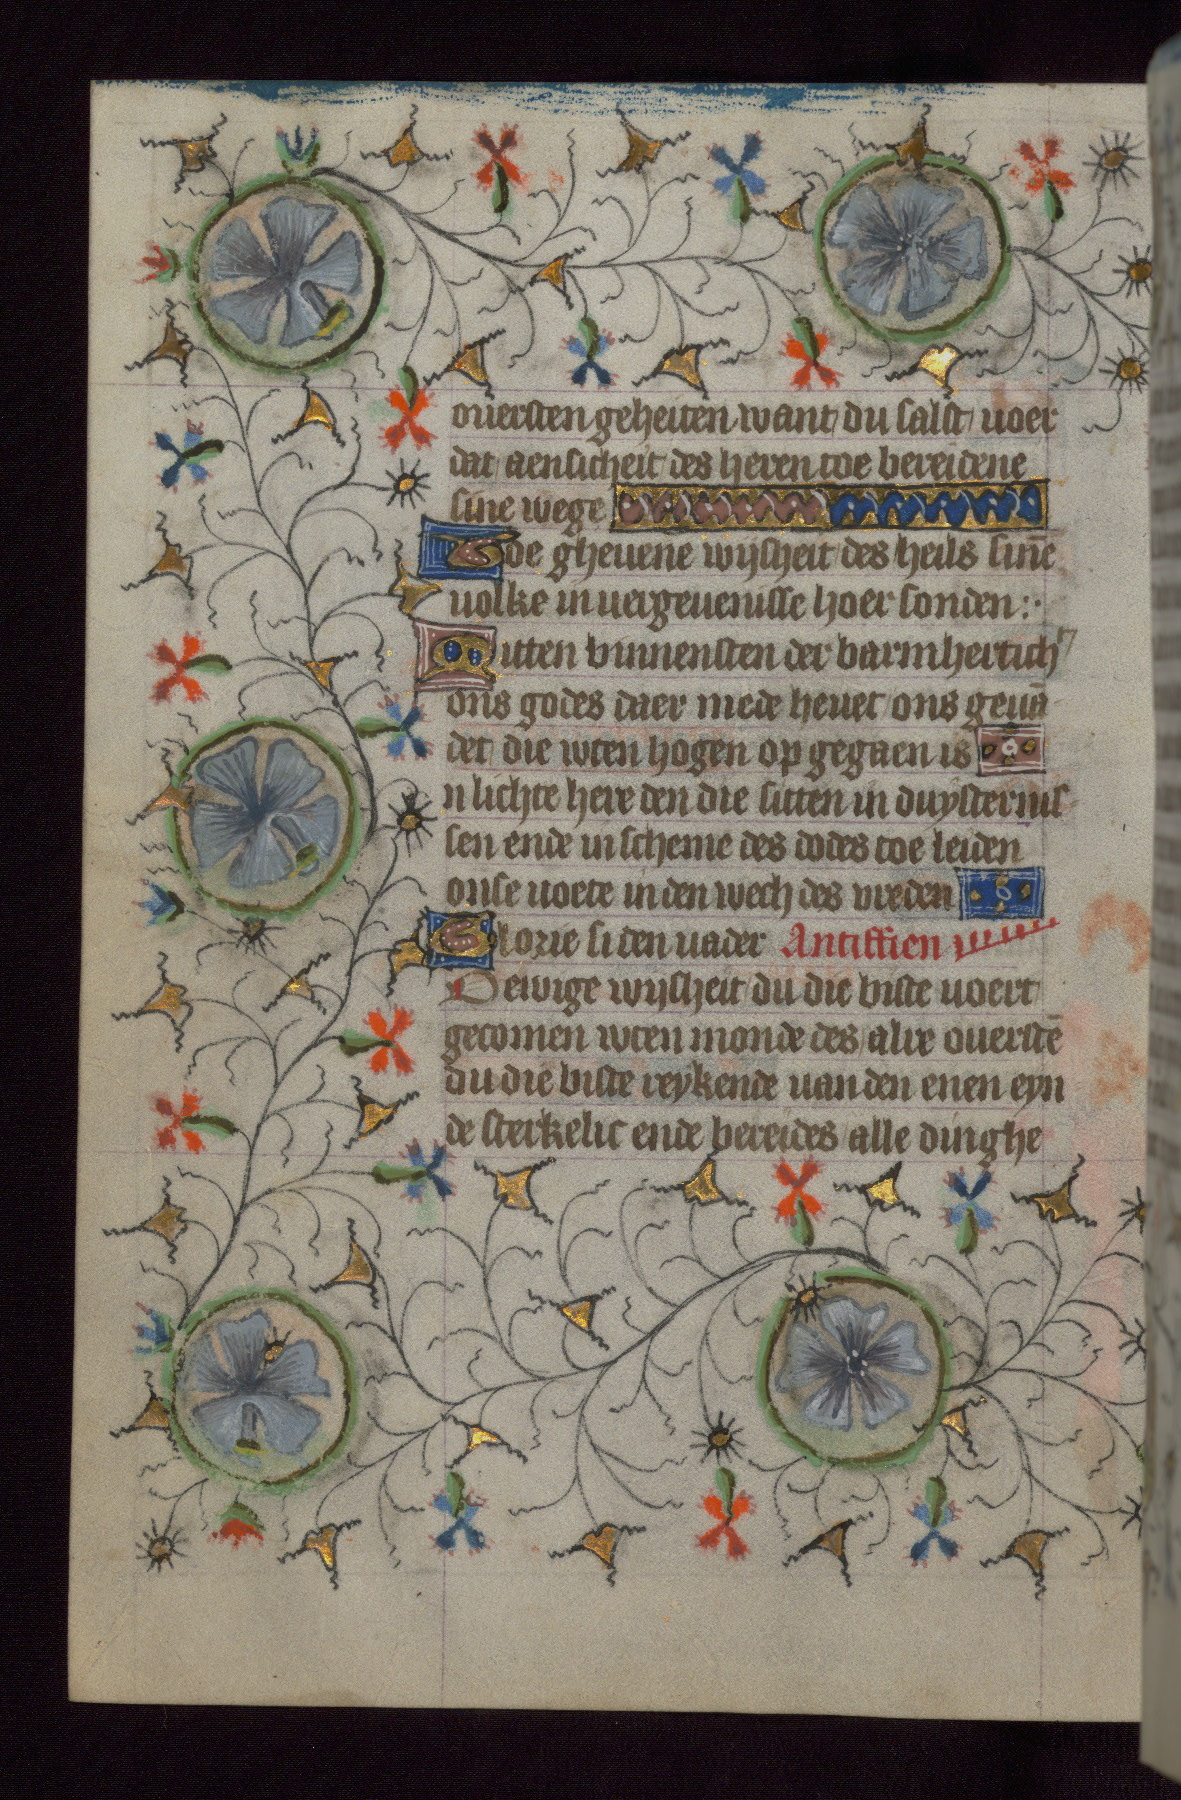 ouersten geheiten want du salst uoer
dat aensicheit des heren toe bereidene
sine wege
de gheuene wijsheit des heils sine̅
uolke in uergeuenisse hoer sonden :·
Mitten binnensten der barmherticht
ons godes daer mede heuet ons geua̅
det die wten hogen op gegaen is
n lichte here den die sitten in duysternis
sen ende in scheme des dodes toe leiden
onse uoete in den wech des vreden
Glorie si den uader Antiffien
O ewige wijsheit du die biste uoert
gecomen wten monde des alre ouerste̅
du die biste reykende uan den enen eyn
de sterkelic ende bereides alle dinghe